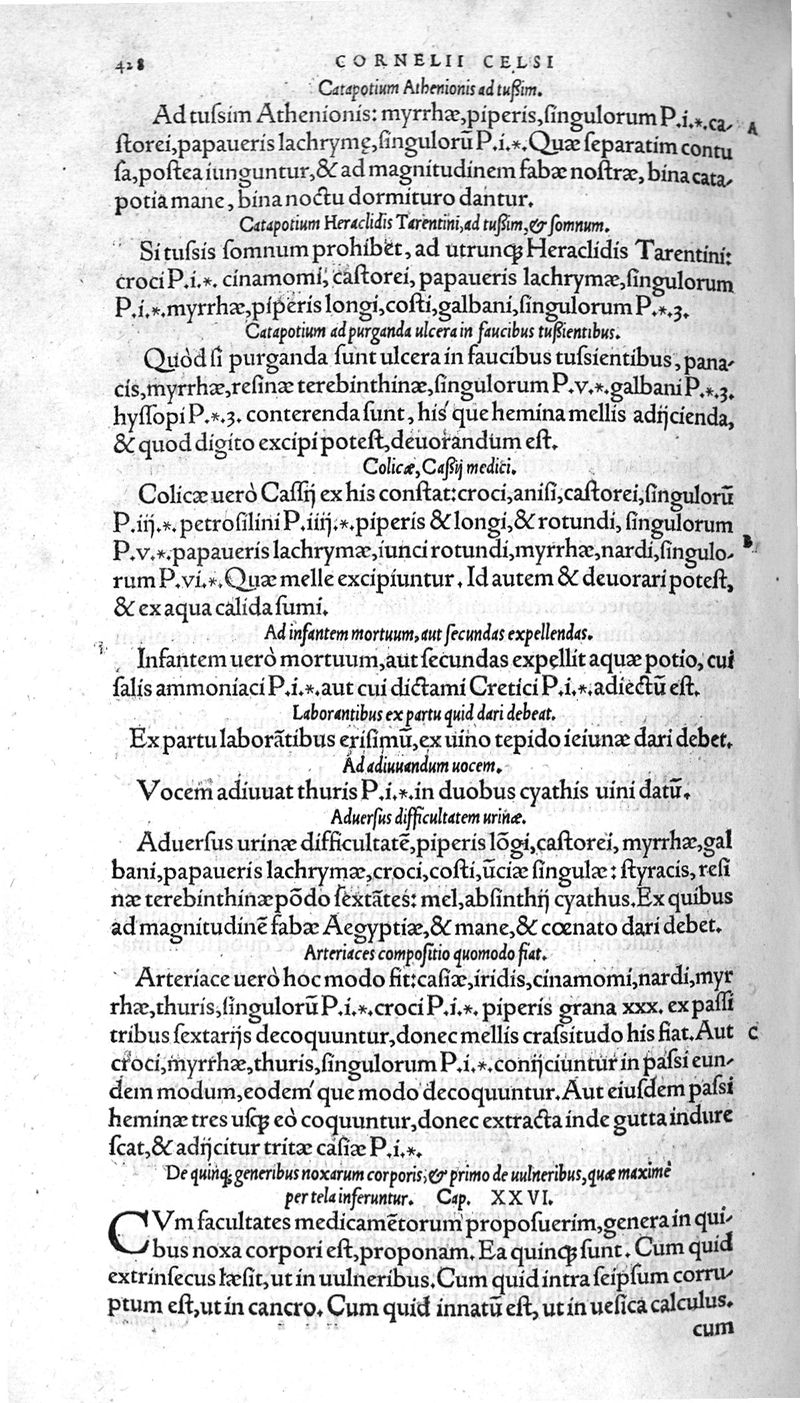 428 CORNELII CELSI
Catapotium Athenionis ad tußim.
Ad tuſsim Athenionis: myrrhæ,piperis,ſingulorum P.i.*.ca-
A
ſtorei,papaueris lachrymę,ſingulorũ P.i.*. Quæ ſeparatim contu
ſa,poſtea iunguntur,& ad magnitudinem fabæ noſtræ, bina cata-
potia mane, bina noctu dormituro dantur.
Catapotium Heraclidis Tarentini,ad tußim,& ſomnum.
Si tuſsis ſomnum prohibet, ad utrunq; Heraclidis Tarentini:
croci P.i.*. cinamomi, caſtorei, papaueris lachrymæ,ſingulorum
P.i.*.myrrhæ,piperis longi,coſti,galbani,ſingulorum P.*.3.
Catapotium ad purganda ulcera in faucibus tußientibus.
Quòd ſi purganda ſunt ulcera in faucibus tuſsientibus, pana-
cis,myrrhæ,reſinæ terebinthinæ,ſingulorum P.v.*.galbani P.*.3.
hyſſopi P.*.3. conterenda ſunt, his'que hemina mellis adijcienda,
& quod digito excipi poteſt,deuorandum eſt.
Colicæ, Caßij medici.
Colicæ uerò Caſſij ex his conſtat:croci,aniſi,caſtorei,ſingulorũ
P.iij.*. petroſilini P.iiij.*.piperis & longi,& rotundi, ſingulorum
P.v.*.papaueris lachrymæ,iunci rotundi,myrrhæ,nardi,ſingulo-
B
rum P.vi.*. Quæ melle excipiuntur. Id autem & deuorari poteſt,
& ex aqua calida ſumi.
Ad infantem mortuum,aut ſecundas expellendas.
Infantem uerò mortuum,aut ſecundas expellit aquæ potio, cui
ſalis ammoniaci P.i.*.aut cui dictami Cretici P.i.*.adiectũ eſt.
Laborantibus ex partu quid dari debeat.
Ex partu laborãtibus eriſimũ,ex uino tepido ieiunæ dari debet.
Ad adiuuandum uocem.
Vocem adiuuat thuris P.i.*.in duobus cyathis uini datũ.
Aduerſus difficultatem urinæ.
Aduerſus urinæ difficultatẽ,piperis lõgi,caſtorei, myrrhæ,gal
bani,papaueris lachrymæ,croci,coſti,ũciæ ſingulæ: ſtyracis, reſi
næ terebinthinæ põdo ſextãtes: mel,abſinthij cyathus.Ex quibus
ad magnitudinẽ fabæ Aegyptiæ,& mane,& cœnato dari debet.
Arteriaces compoſitio quomodo fiat.
Arteriace uerò hoc modo fit:caſiæ,iridis,cinamomi,nardi,myr
rhæ,thuris,ſingulorũ P.i.*.croci P.i.*. piperis grana xxx. ex paſſi
tribus ſextarijs decoquuntur,donec mellis craſsitudo his fiat.Aut
C
croci,myrrhæ,thuris,ſingulorum P.i.*.conijciuntur in paſsi eun-
dem modum,eodem'que modo decoquuntur.Aut eiuſdem paſsi
heminæ tres uſq; eò coquuntur,donec extracta inde gutta indure
ſcat,& adijcitur tritæ caſiæ P.i.*.
De quinq; generibus noxarum corporis,& primo de uulneribus,quæ maximè
per tela inferuntur. Cap. XXVI.
CVm facultates medicamẽtorum propoſuerim,genera in qui-
bus noxa corpori eſt,proponam.Ea quinq; ſunt. Cum quid
extrinſecus læſit,ut in uulneribus.Cum quid intra ſeipſum corru-
ptum eſt,ut in cancro. Cum quid innatũ eſt, ut in ueſica calculus.
cum